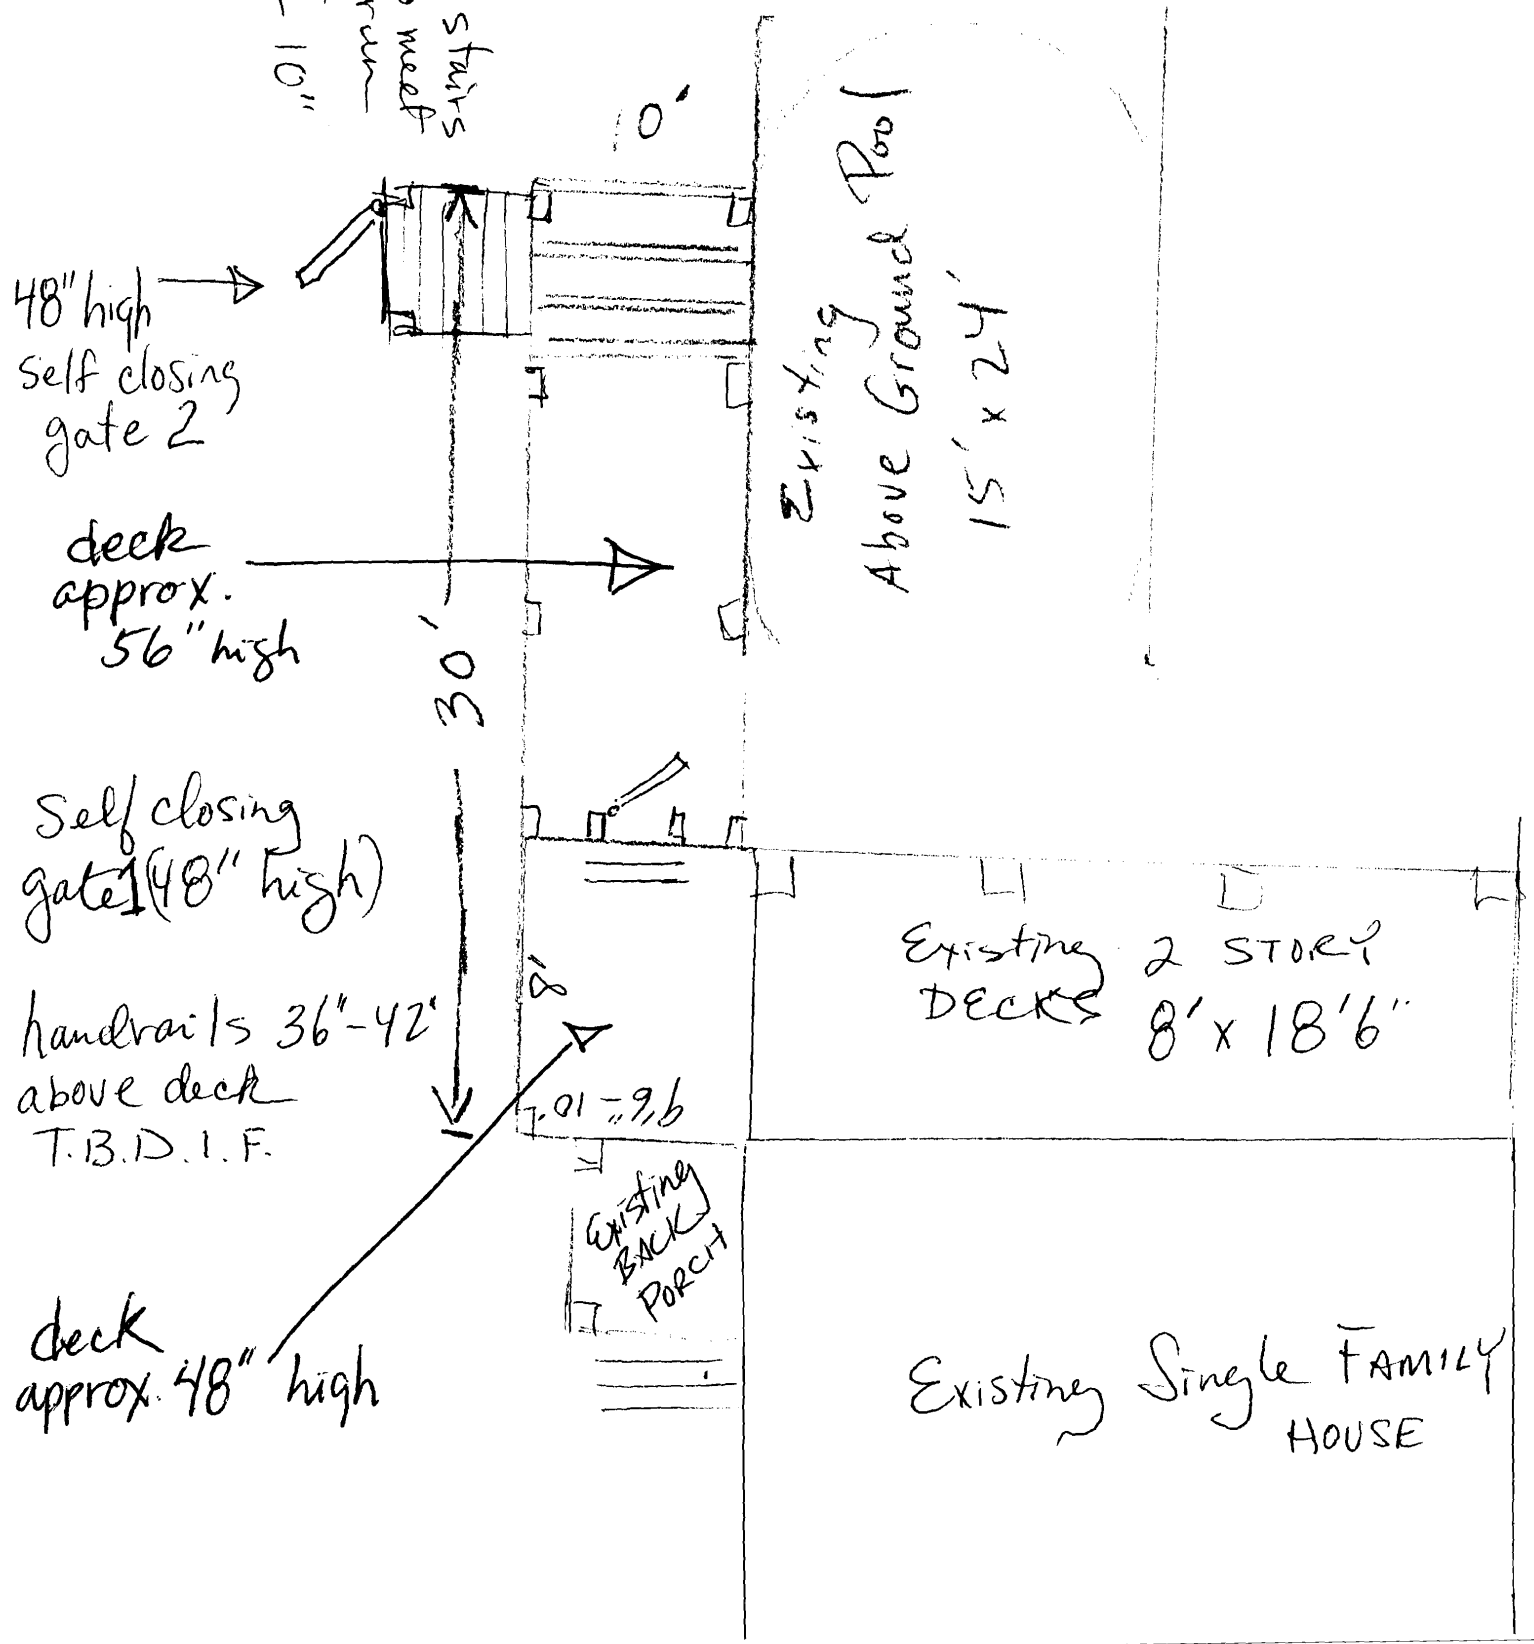 stairs
meet
run
10"
10'
48" high
self closing
gate 2
Existing
Above Ground Pool
15' x 24'
deck
approx.
56" high
30'
Self closing
gate 1 (48" high)
handrails 36"-42"
above deck
T.B.D.I.F.
8'
9'6"-10'
Existing 2 STORY
DECKS 8' x 18'6"
Existing
BACK
PORCH
deck
approx. 48" high
Existing Single FAMILY
HOUSE